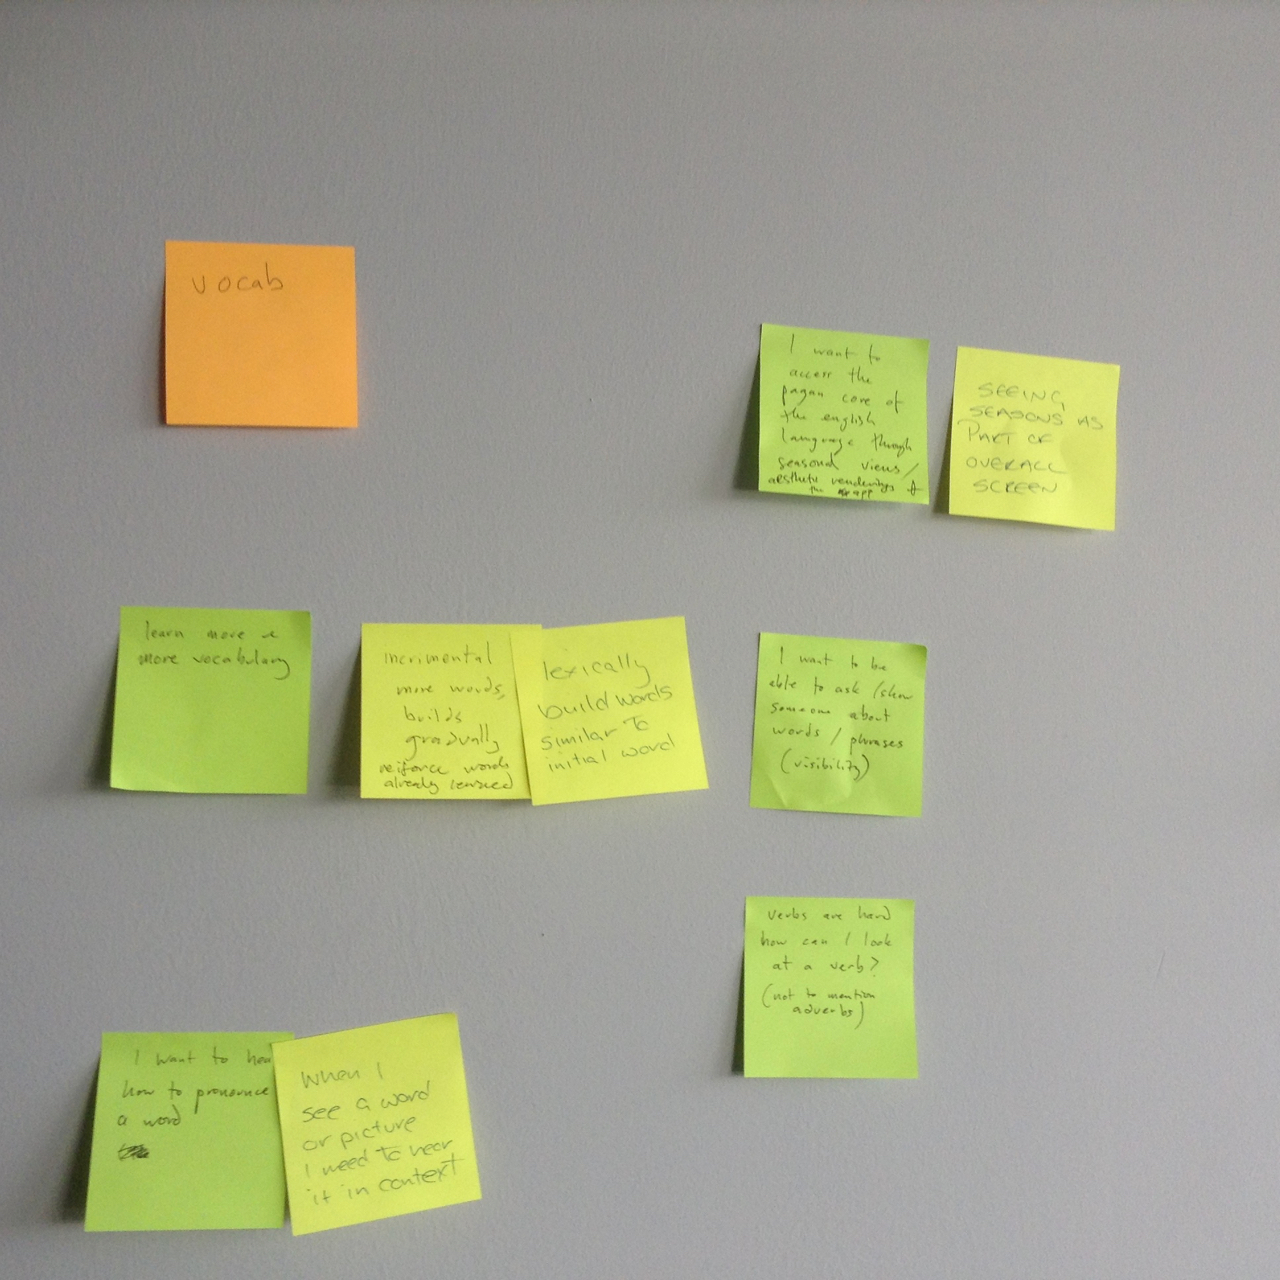 vocab
I want to
access the
pagan core of
the english
language through
seasonal views /
aesthetic renderings of
the app
SEEING
SEASONS AS
PART OF
OVERALL
SCREEN
learn more &
more vocabulary
incrimental
more words,
builds
gradually
reiforce words
already learned
lexically
build words
similar to
initial word
I want to be
able to ask / show
someone about
words / phrases
(visibility)
verbs are hard
how can I look
at a verb?
(not to mention
adverbs)
I want to hea
how to pronounce
a word
When I
see a word
or picture
I need to hear
it in context